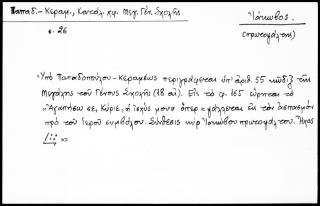 Παπαδ.-Κεραμ., Κατάλ. χφ. Μεγ. Γέν. Σχολῆς
Ἰάκωβος.
σ. 26
(πρωτοψάλτης)
«Ὑπὸ Παπαδοπούλου-Κεραμέως περιγράφεται ὑπ' ἀριθ. 55 κῶδιξ τῆς
Μεγάλης τοῦ Γένους Σχολῆς (18 αἰ.). Εἰς τὸ φ. 165 εὕρηται τὸ
«Ἀγαπήσω σε, Κύριε, ἡ ἰσχύς μου» ὅπερ ψάλλεται εἰς τὸν ἀσπασμὸν
πρὸ τοῦ ἱεροῦ συμβόλου. Σύνθεσις κὺρ Ἰακώβου πρωτοψάλτου. Ἦχος